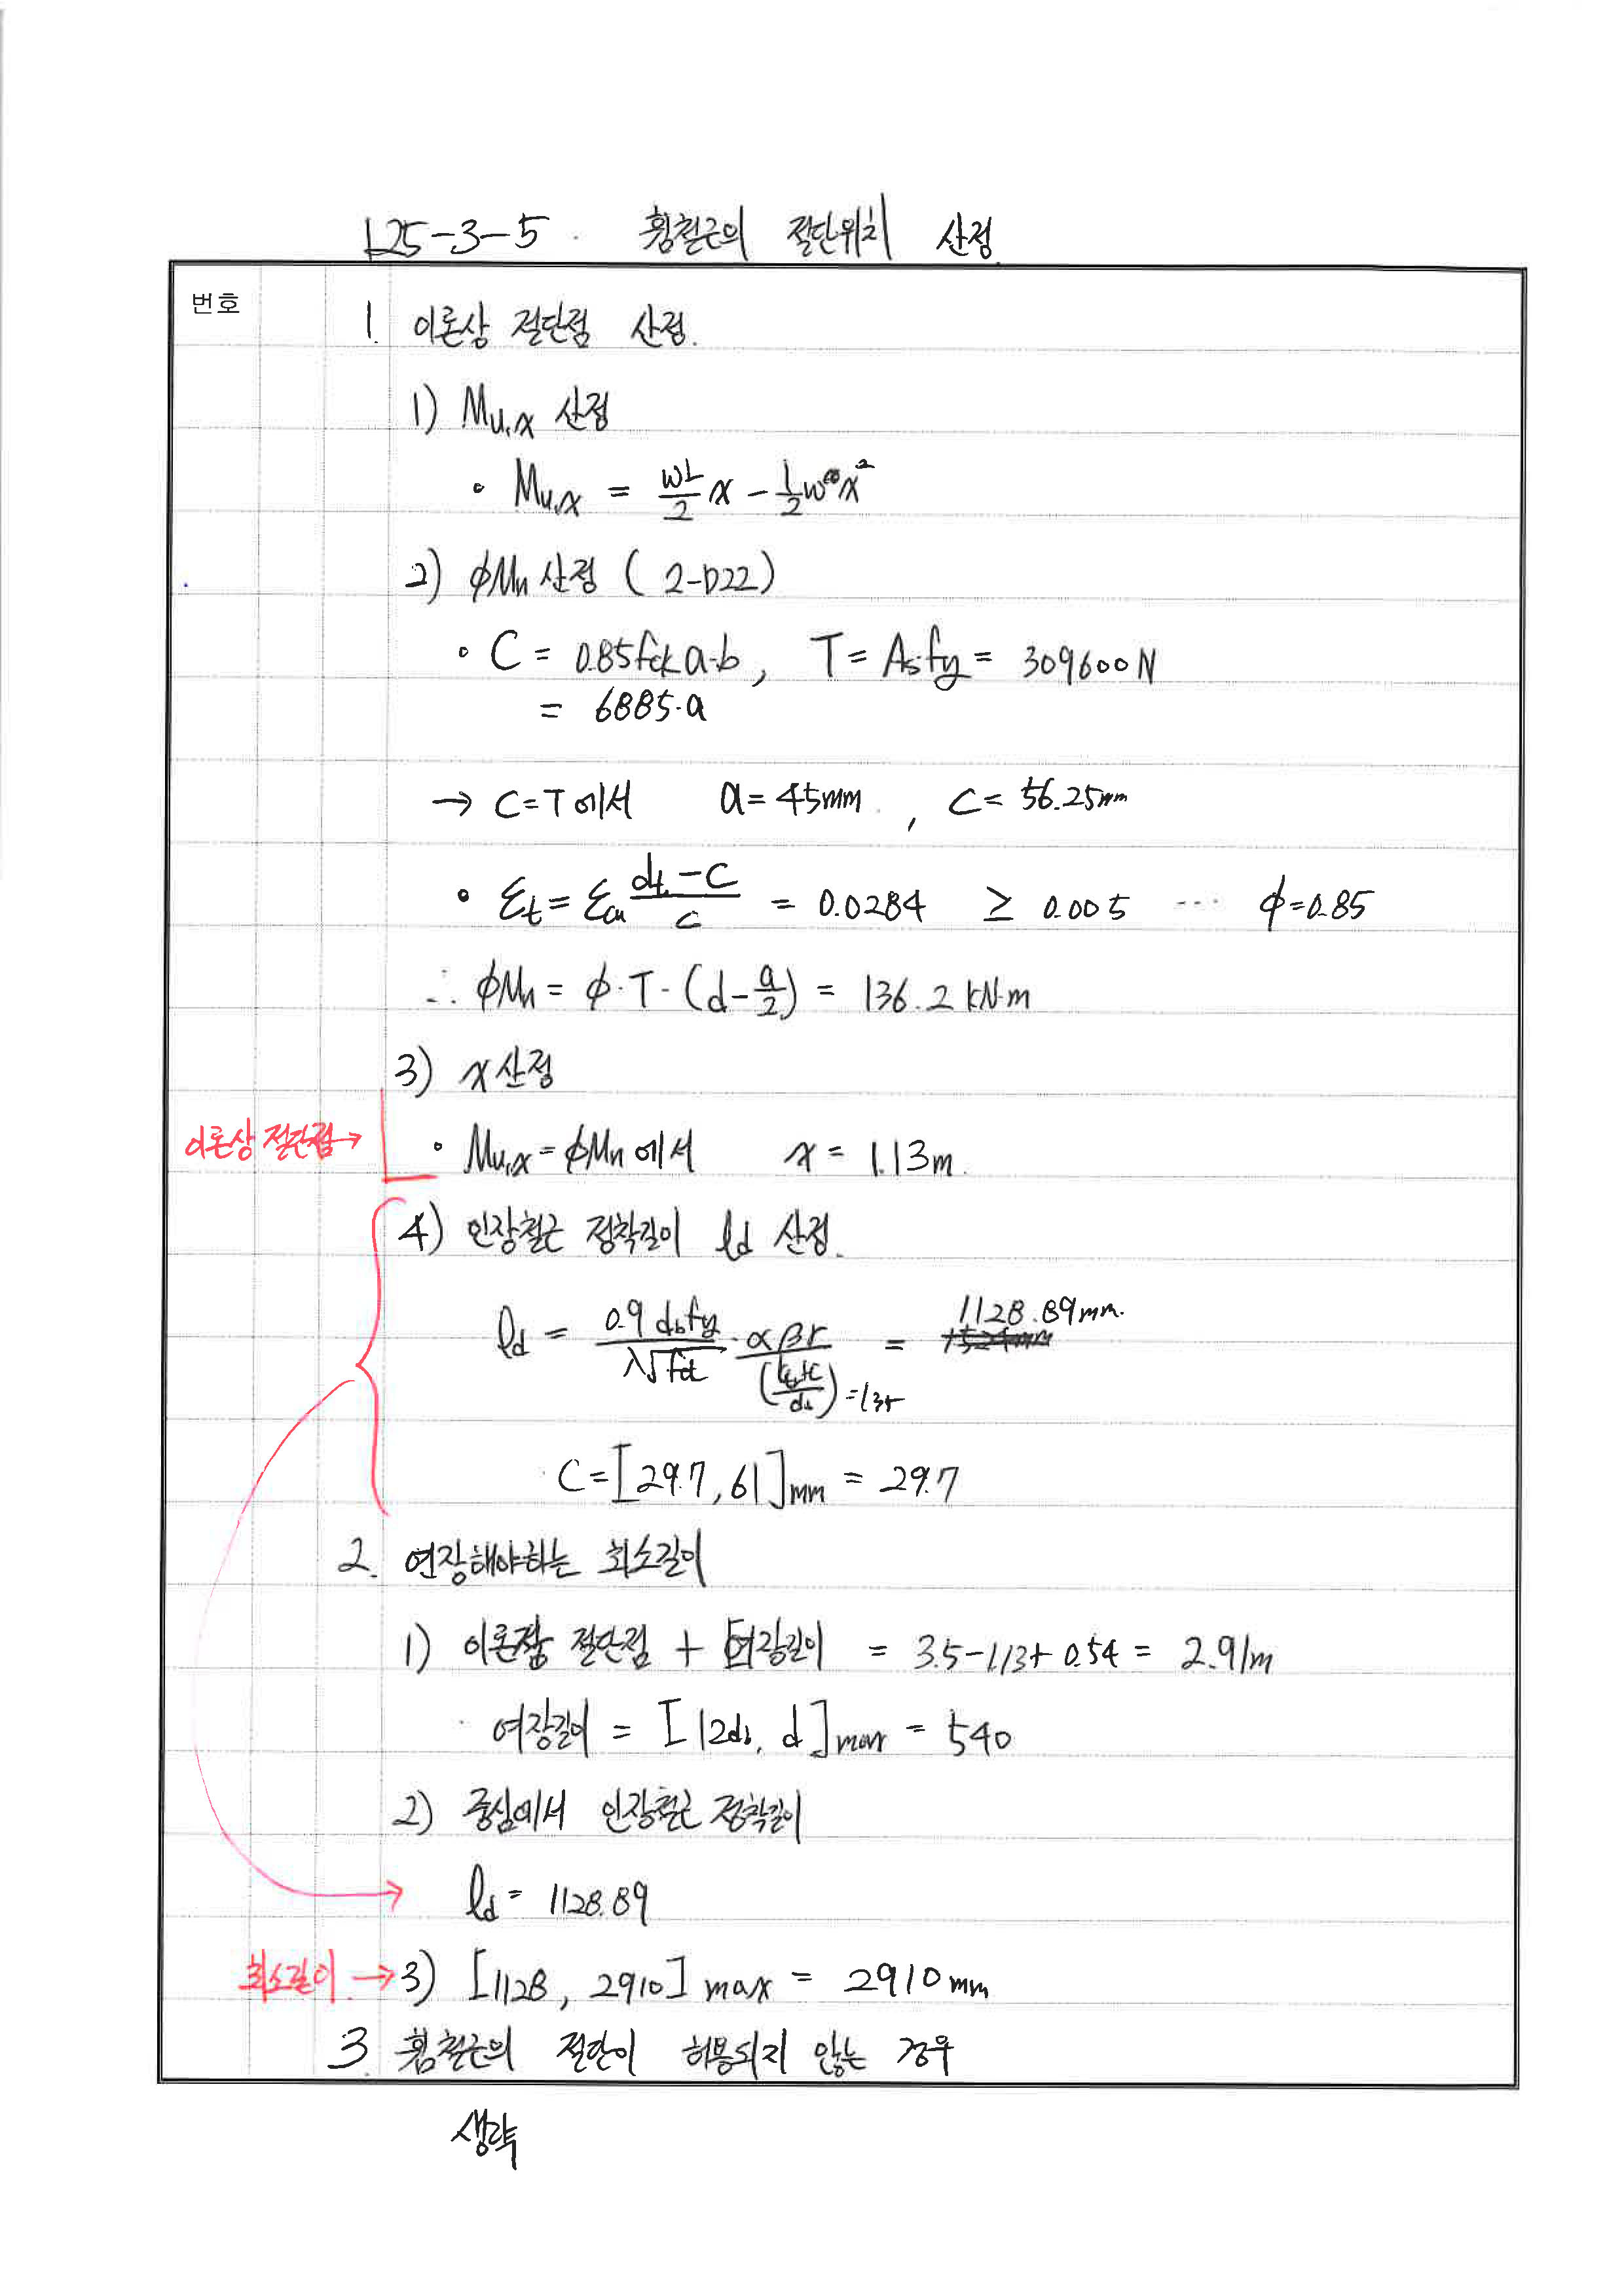 125-3-5. 휨철근의 절단위치 산정
번호
1. 이론상 절단점 산정.
1) Mu,x 산정
• Mu,x = wL/2 x - 1/2 w x²
2) φMn 산정 ( 2-D22 )
• C = 0.85fck a·b , T = As·fy = 309600N
= 6885·a
→ C=T에서 a = 45mm , c = 56.25mm
• εt = εcu (dt - c)/c = 0.0284 ≥ 0.005 ··· φ=0.85
∴ φMn = φ·T·(d - a/2) = 136.2 kN·m
3) x 산정
이론상 절단점→ • Mu,x = φMn에서 x = 1.13m.
4) 인장철근 정착길이 ld 산정.
ld = 0.9 db fy / λ√fck · αβγ / ((ktr+c)/db) =1.35 = 1128.89mm.
· C = [29.7, 61]mm = 29.7
2. 연장해야하는 최소길이
1) 이론점 절단점 + 여장길이 = 3.5-1.13+0.54 = 2.91m
· 여장길이 = [12db, d]max = 540
2) 중심에서 인장철근 정착길이
ld = 1128.89
최소길이 → 3) [1128, 2910]max = 2910mm
3. 휨철근의 절단이 허용되지 않는 경우
생략